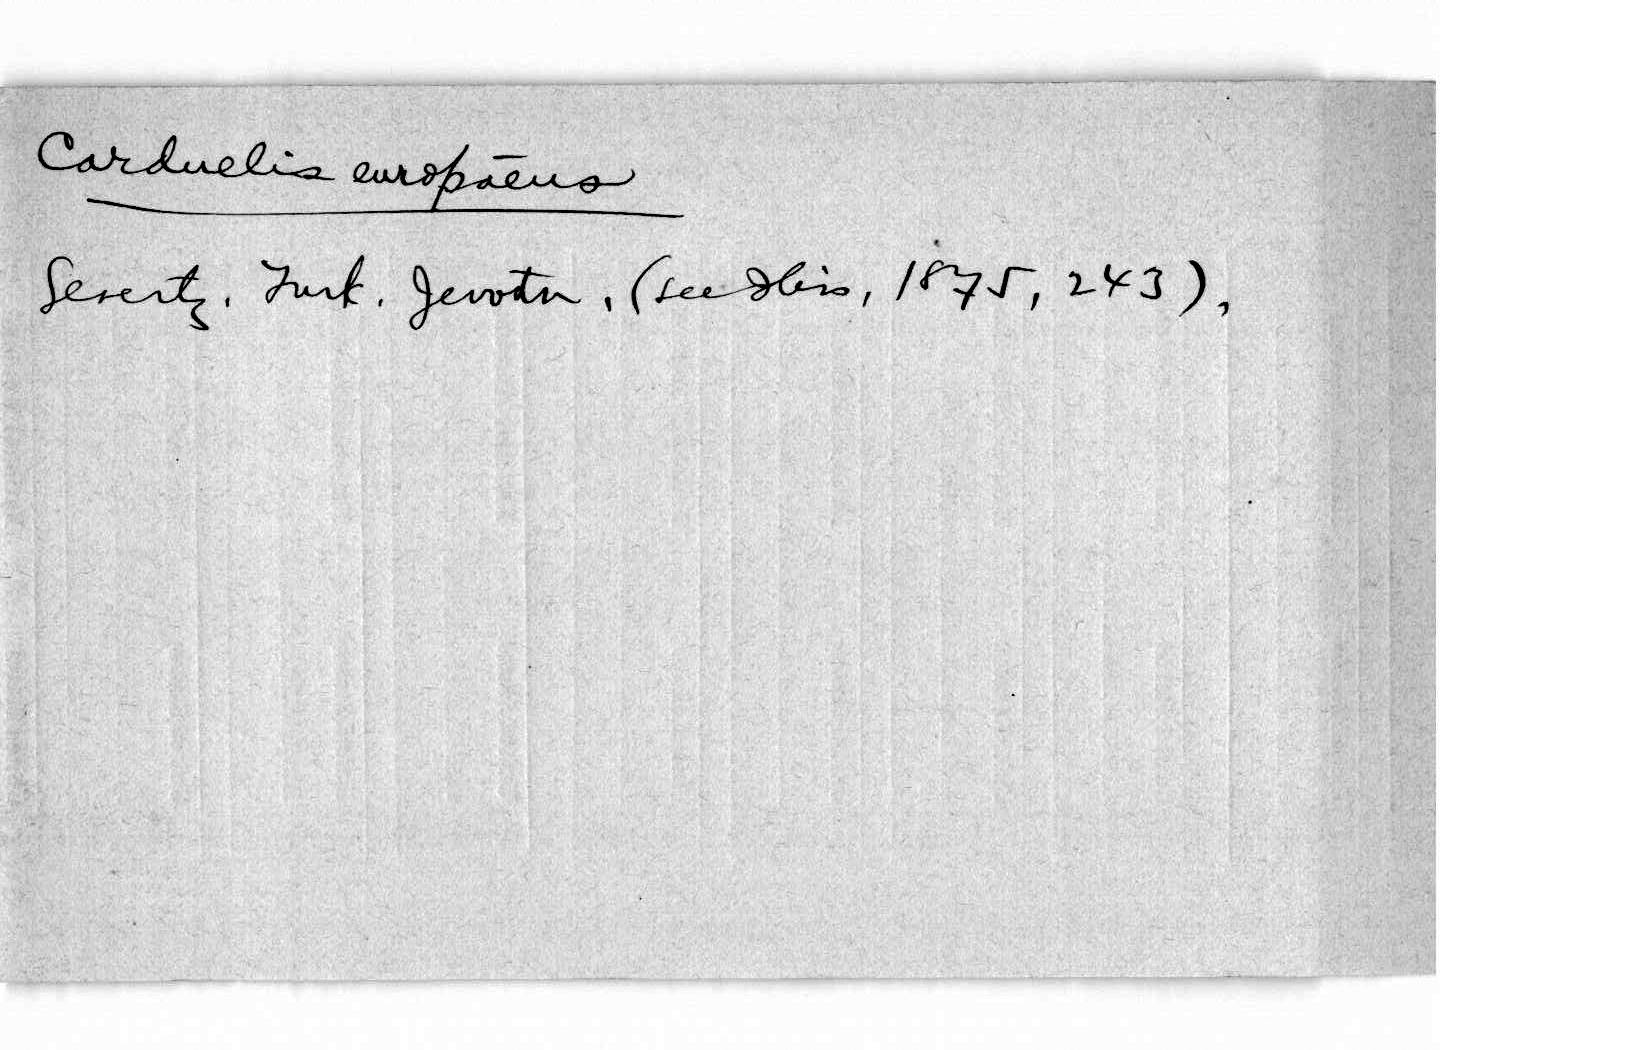 Carduelis europaeus
Severtz. Turk. Jevotn, (see Ibis, 1875, 243),